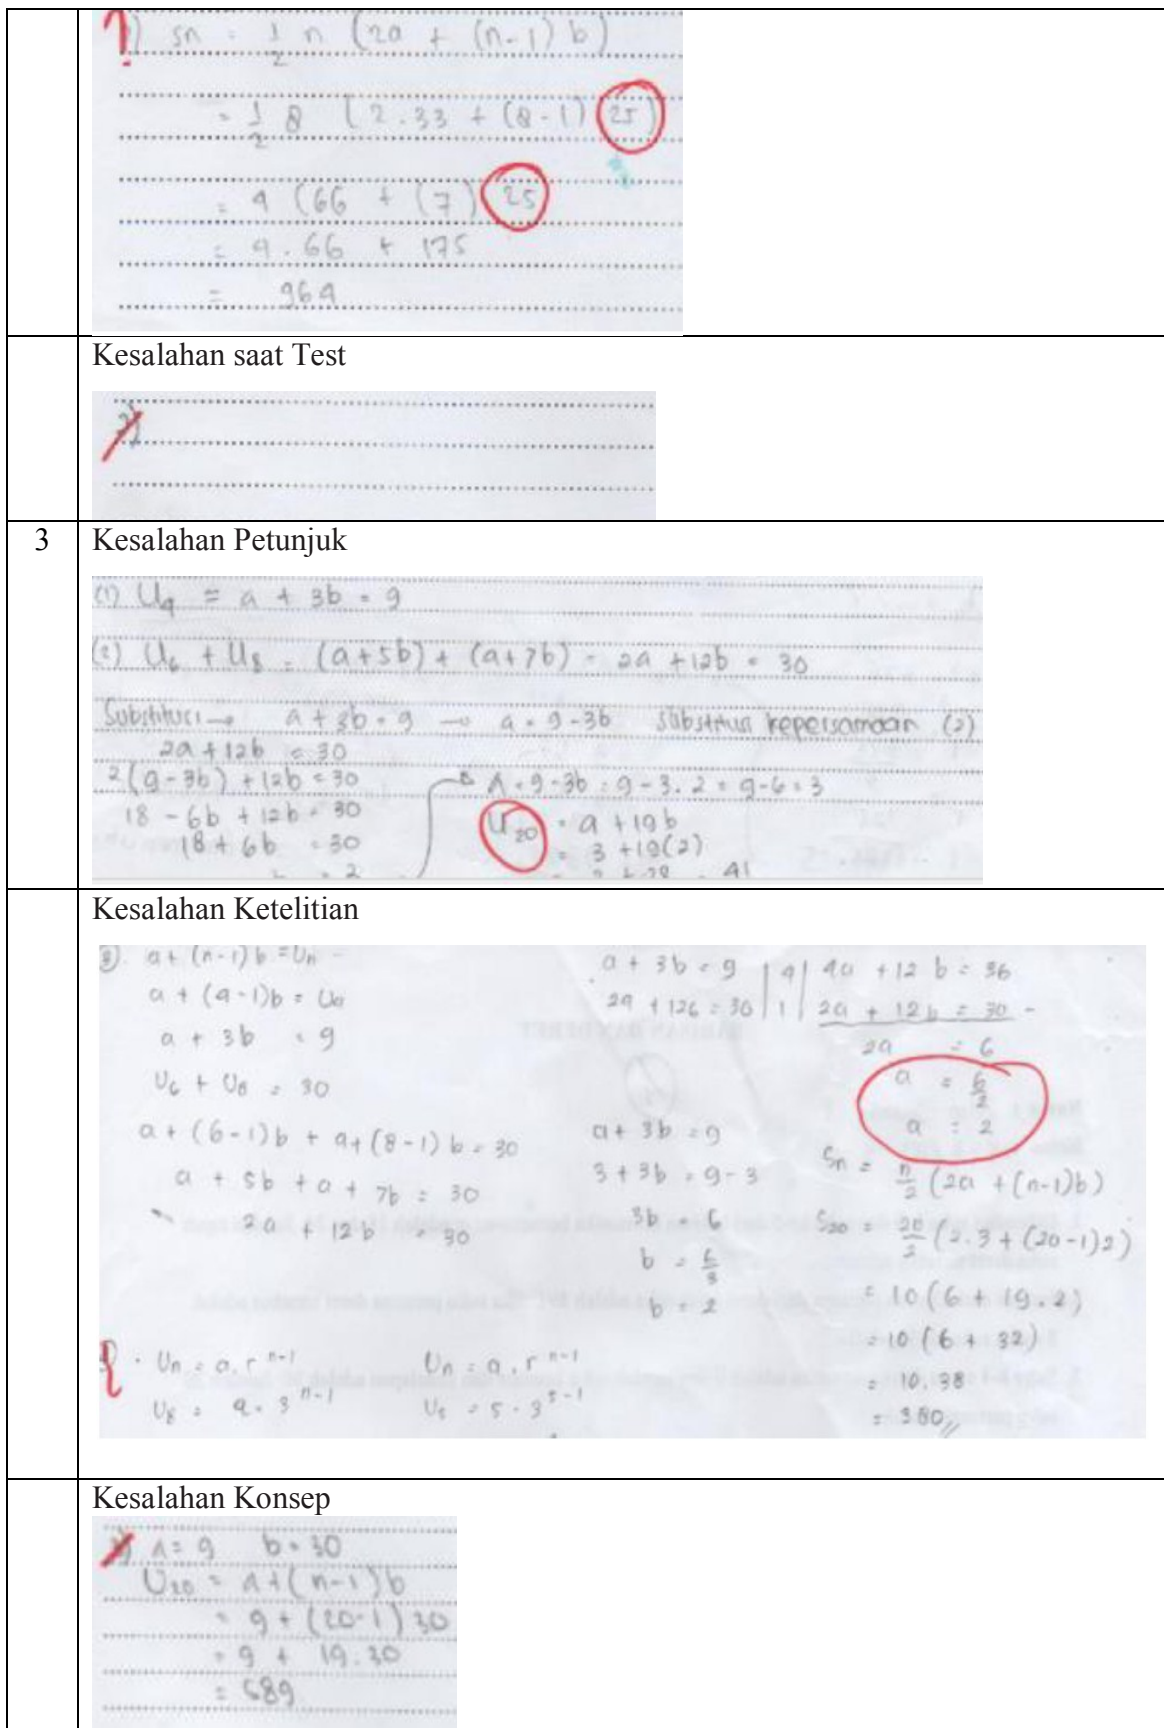 Sn = 1/2 n (2a + (n-1) b)
= 1/2 8 (2.33 + (8-1) 25)
= 4 (66 + (7) 25
= 4.66 + 175
= 964
Kesalahan saat Test
3 Kesalahan Petunjuk
(1) U4 = a + 3b = 9
(2) U6 + U8 = (a+5b) + (a+7b) = 2a + 12b = 30
Substitusi → a + 3b = 9 → a = 9-3b substitusi kepersamaan (2)
2a + 12b = 30
2(9-3b) + 12b = 30
A = 9-3b = 9-3.2 = 9-6 = 3
18 - 6b + 12b = 30
U20 = a + 19b
18 + 6b = 30
= 3 + 19(2)
= 2
41
Kesalahan Ketelitian
3). a + (n-1) b = Un
a + (4-1)b = U4
a + 3b = 9
U6 + U8 = 30
a + (6-1)b + a+(8-1)b = 30
a + 5b + a + 7b = 30
2a + 12b = 30
a + 3b = 9 | 4 | 4a + 12b = 36
2a + 12b = 30 | 1 | 2a + 12b = 30 -
2a = 6
a = 6/2
a = 2
a + 3b = 9
3 + 3b = 9-3
3b = 6
b = 6/3
b = 2
Sn = n/2 (2a + (n-1)b)
S20 = 20/2 (2.3 + (20-1)2)
= 10(6 + 19.2)
= 10(6 + 32)
= 10.38
= 380//
Un = a.r^n-1
Un = a.r^n-1
U5 = 5.3^5-1
Kesalahan Konsep
A = 9 b = 30
U20 = A+(n-1)b
= 9 + (20-1)30
= 9 + 19.30
= 689